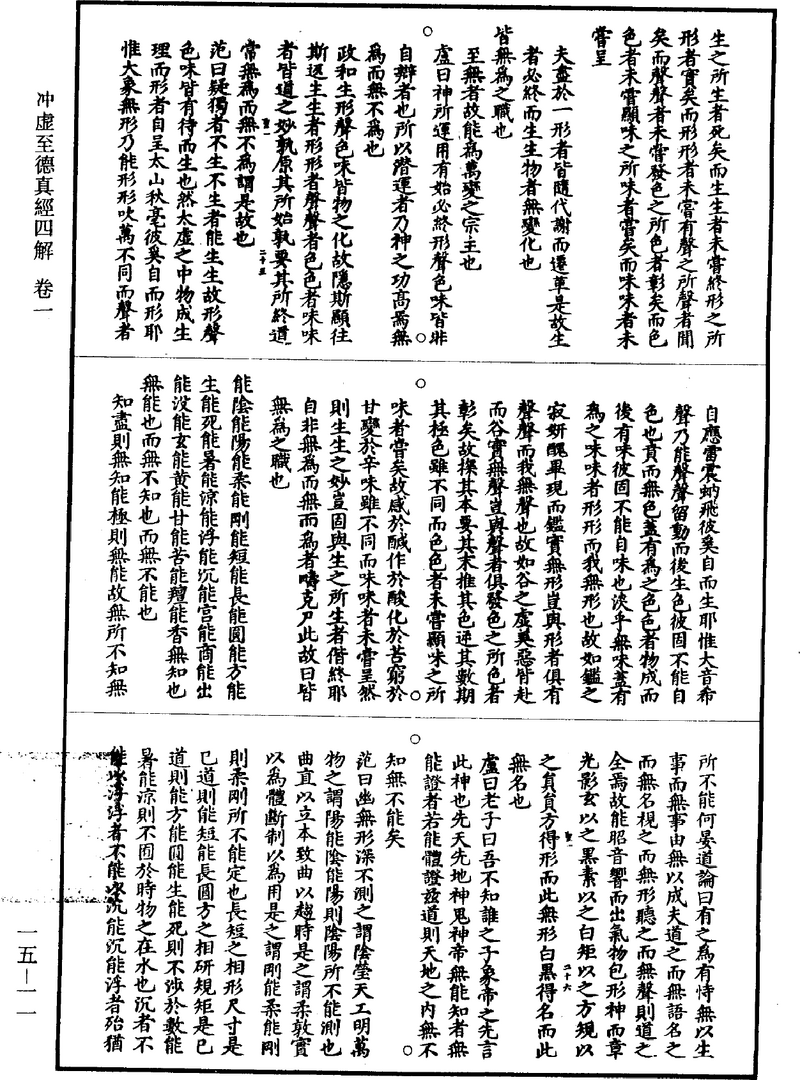 冲虛至德真經四解　卷一
生之所生者死矣而生生者未嘗終形之所
形者實矣而形形者未嘗有聲之所聲者聞
矣而聲聲者未嘗發色之所色者彰矣而色
色者未嘗顯味之所味者嘗矣而味味者未
嘗呈
夫盡於一形者皆隨代謝而遷革是故生
者必終而生生物者無變化也
皆無為之職也
至無者故能為萬變之宗主也
盧曰神所運用有始必終形聲色味皆非
自辯者也所以潛運者乃神之功高焉無
為而無不為也
政和生形聲色味皆物之化故隱斯顯往
斯返生生者形形者聲聲者色色者味味
者皆道之妙孰原其所始孰要其所終道
常無為而無不為謂是故也
二十五
范曰疑獨者不生不生者能生生故形聲
色味皆有待而生也然太虛之中物成生
理而形者自呈太山秋毫彼奚自而形耶
惟大象無形乃能形形吹萬不同而聲者
自應雷震蚋飛彼奚自而生耶惟大音希
聲乃能聲聲留動而後生色彼固不能自
色也賁而無色蓋有為之色色者物成而
後有味彼固不能自味也淡乎無味蓋有
為之味味者形形而我無形也故如鑑之
寂妍醜畢現而鑑實無形豈與形者俱有
聲聲而我無聲也故如谷之虛美惡皆赴
而谷實無聲豈與聲者俱發色之所色者
彰矣故探其本要其末推其色逆其數期
其極色雖不同而色色者未嘗顯味之所
味者嘗矣故咸於醎作於酸化於苦窮於
甘變於辛味雖不同而味味者未嘗呈然
則生生之妙豈固與生之所生者偕終耶
自非無為而無而為者疇克尸此故曰皆
無為之職也
能陰能陽能柔能剛能短能長能圓能方能
生能死能暑能涼能浮能沉能宮能商能出
能沒能玄能黃能甘能苦能羶能香無知也
無能也而無不知也而無不能也
知盡則無知能極則無能故無所不知無
所不能何晏道論曰有之為有恃無以生
事而無事由無以成夫道之而無語名之
而無名視之而無形聽之而無聲則道之
全焉故能昭音響而出氣物包形神而章
光影玄以之黑素以之白矩以之方規以
二十六
之員員方得形而此無形白黑得名而此
無名也
盧曰老子曰吾不知誰之子象帝之先言
此神也先天先地神鬼神帝無能知者無
能證者若能體證茲道則天地之內無不
知無不能矣
范曰幽無形深不測之謂陰瑩天工明萬
物之謂陽能陰能陽則陰陽所不能測也
曲直以立本致曲以趨時是之謂柔敦實
以為體斷制以為用是之謂剛能柔能剛
則柔剛所不能定也長短之相形尺寸是
已道則能短能長圓方之相研規矩是已
道則能方能圓能生能死則不涉於數能
暑能涼則不囿於時物之在水也沉者不
能以浮浮者不能以沉能沉能浮者殆猶
一五－一一